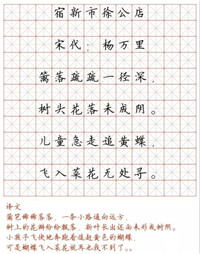 宿新市徐公店
宋代：杨万里
篱落疏疏一径深，
树头花落未成阴。
儿童急走追黄蝶，
飞入菜花无处寻。
译文
篱笆稀稀落落，一条小路通向远方，
树上的花瓣纷纷飘落，新叶长出还尚未形成树阴。
小孩子飞快地奔跑着追赶黄色的蝴蝶，
可是蝴蝶飞入菜花就再也找不到了。。